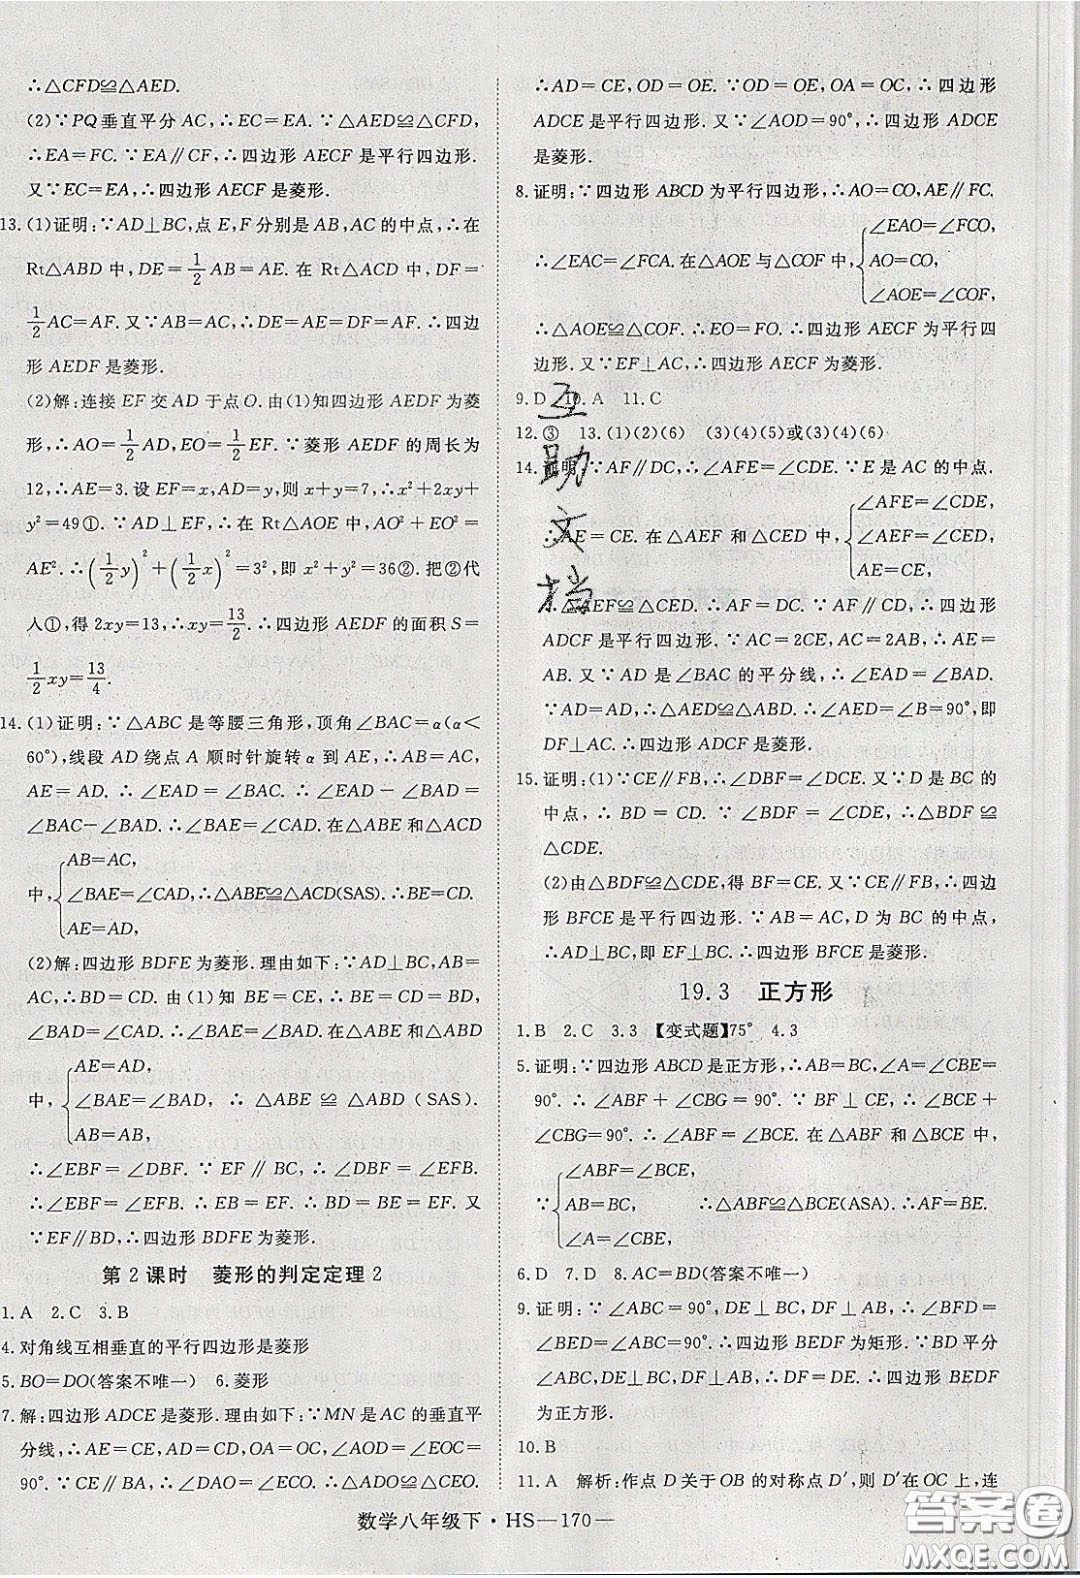 ∴△CFD≌△AED.
(2)∵PQ垂直平分 AC,∴EC=EA.∵△AED≌△CFD,
∴EA=FC.∵EA∥CF,∴四边形 AECF是平行四边形.
又∵EC=EA,∴四边形 AECF是菱形.
13.(1)证明:∵AD⊥BC,点 E,F 分别是 AB,AC 的中点,∴在
Rt△ABD 中,DE=1/2AB=AE.在 Rt△ACD 中,DF=
1/2AC=AF.又∵AB=AC,∴DE=AE=DF=AF.∴四边
形 AEDF 是菱形.
(2)解:连接 EF 交 AD 于点 O.由(1)知四边形 AEDF 为菱
形,∴AO=1/2AD,EO=1/2EF.∵菱形 AEDF 的周长为
12,∴AE=3.设 EF=x,AD=y,则 x+y=7,∴x²+2xy+
y²=49①.∵AD⊥EF,∴在 Rt△AOE 中,AO²+EO²=
AE².∴(1/2y)²+(1/2x)²=3²,即 x²+y²=36②.把②代
入①,得 2xy=13,∴xy=13/2.∴四边形 AEDF 的面积 S=
1/2xy=13/4.
14.(1)证明:∵△ABC 是等腰三角形,顶角∠BAC=α(α<
60°),线段 AD 绕点 A 顺时针旋转 α 到 AE,∴AB=AC,
AE=AD.∴∠EAD=∠BAC.∴∠EAD-∠BAD=
∠BAC-∠BAD.∴∠BAE=∠CAD.在△ABE 和△ACD
AB=AC,
中,∠BAE=∠CAD,∴△ABE≌△ACD(SAS).∴BE=CD.
AE=AD,
(2)解:四边形 BDFE 为菱形.理由如下:∵AD⊥BC,AB=
AC,∴BD=CD.由(1)知 BE=CD,∠BAE=∠CAD,
∠BAD=∠CAD.∴∠BAE=∠BAD.在△ABE 和△ABD
AE=AD,
中,∠BAE=∠BAD,∴△ABE≌△ABD(SAS).
AB=AB,
∴∠EBF=∠DBF.∵EF∥BC,∴∠DBF=∠EFB.
∴∠EBF=∠EFB.∴EB=EF.∴BD=BE=EF.又
∵EF∥BD,∴四边形 BDFE 为菱形.
第2课时 菱形的判定定理2
1.A 2.C 3.B
4.对角线互相垂直的平行四边形是菱形
5.BO=DO(答案不唯一) 6.菱形
7.解:四边形 ADCE 是菱形.理由如下:∵MN 是 AC 的垂直平
分线,∴AE=CE,AD=CD,OA=OC,∠AOD=∠EOC=
90°.∵CE∥BA,∴∠DAO=∠ECO.∴△ADO≌△CEO.
∴AD=CE,OD=OE.∵OD=OE,OA=OC,∴四边形
ADCE 是平行四边形.又∵∠AOD=90°,∴四边形 ADCE
是菱形.
8.证明:∵四边形 ABCD 为平行四边形,∴AO=CO,AE∥FC.
∠EAO=∠FCO,
∴∠EAC=∠FCA.在△AOE 与△COF 中,AO=CO,
∠AOE=∠COF,
∴△AOE≌△COF.∴EO=FO.∴四边形 AECF 为平行四
边形.又∵EF⊥AC,∴四边形 AECF 为菱形.
9.D 10.A 11.C
12.③ 13.(1)(2)(6) (3)(4)(5)或(3)(4)(6)
14.证明:∵AF∥DC,∴∠AFE=∠CDE.∵E 是 AC 的中点,
∠AFE=∠CDE,
∴AE=CE.在△AEF 和△CED 中,∠AEF=∠CED,
AE=CE,
∴△AEF≌△CED.∴AF=DC.∵AF∥CD,∴四边形
ADCF 是平行四边形.∵AC=2CE,AC=2AB,∴AE=
AB.又∵AD 是∠BAC 的平分线,∴∠EAD=∠BAD.又
∵AD=AD,∴△AED≌△ABD.∴∠AED=∠B=90°,即
DF⊥AC.∴四边形 ADCF 是菱形.
15.证明:(1)∵CE∥FB,∴∠DBF=∠DCE.又∵D 是 BC 的
中点,∴BD=CD.∵∠BDF=∠CDE,∴△BDF≌
△CDE.
(2)由△BDF≌△CDE,得 BF=CE.又∵CE∥FB,∴四边
形 BFCE 是平行四边形.∵AB=AC,D 为 BC 的中点,
∴AD⊥BC,即 EF⊥BC.∴四边形 BFCE 是菱形.
19.3 正方形
1.B 2.C 3.3 【变式题】75° 4.3
5.证明:∵四边形 ABCD 是正方形,∴AB=BC,∠A=∠CBE=
90°.∴∠ABF+∠CBG=90°.∵BF⊥CE,∴∠BCE+
∠CBG=90°.∴∠ABF=∠BCE.在△ABF 和△BCE 中,
∠ABF=∠BCE,
∵AB=BC, ∴△ABF≌△BCE(ASA).∴AF=BE.
∠A=∠CBE,
6.D 7.D 8.AC=BD(答案不唯一)
9.证明:∵∠ABC=90°,DE⊥BC,DF⊥AB,∴∠BFD=
∠BED=∠ABC=90°.∴四边形 BEDF 为矩形.∵BD 平分
∠ABC,DE⊥BC,DF⊥AB,∴DF=DE.∴四边形 BEDF
为正方形.
10.B
11.A 解析:作点 D 关于 OB 的对称点 D′,则 D′在 OC 上,连
数学八年级下·HS—170—
互助文档
答案圈
MXQE.COM